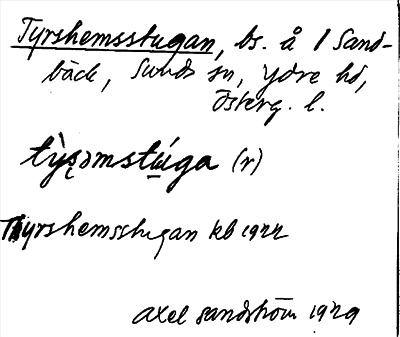 Tyrshemsstugan, bs. å 1 Sand-
bäck, Sunds sn, Ydre hd,
Österg. l.
tỳʂəmstúga (r)
Tyrshemsstugan kb 1922
Axel Sandström 1929